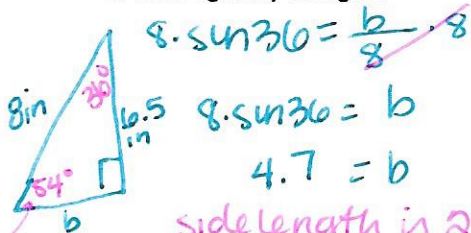 8·sin36 = b/8 · 8
8in
36°
6.5
in
8·sin36 = b
54°
4.7 = b
b
side length is 2